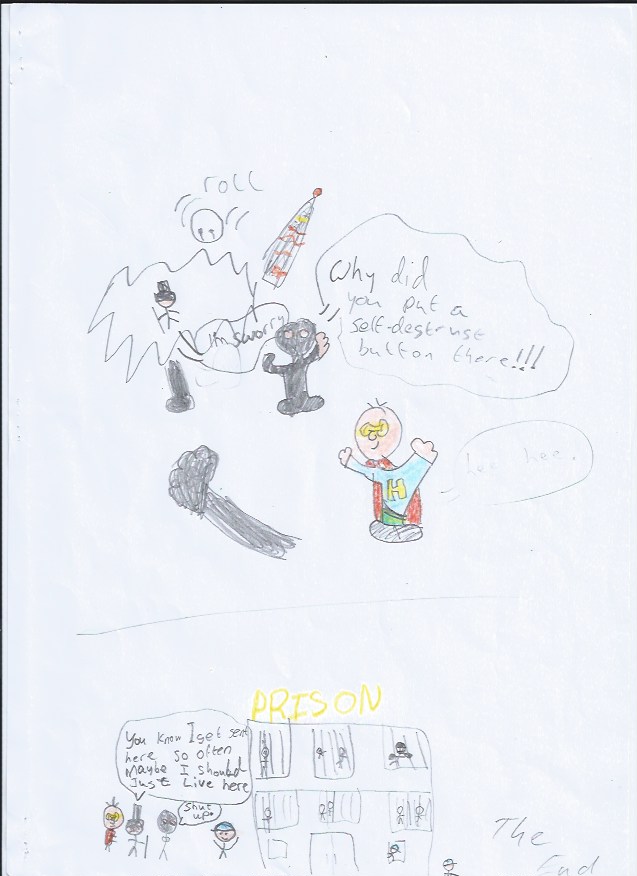 roll
Why did
you put a
self-destrust
button there!!!
I'm sworry
hee hee.
H
PRISON
You know I get sent
here so often
Maybe I should
Just Live here
Shut
up.
The
End